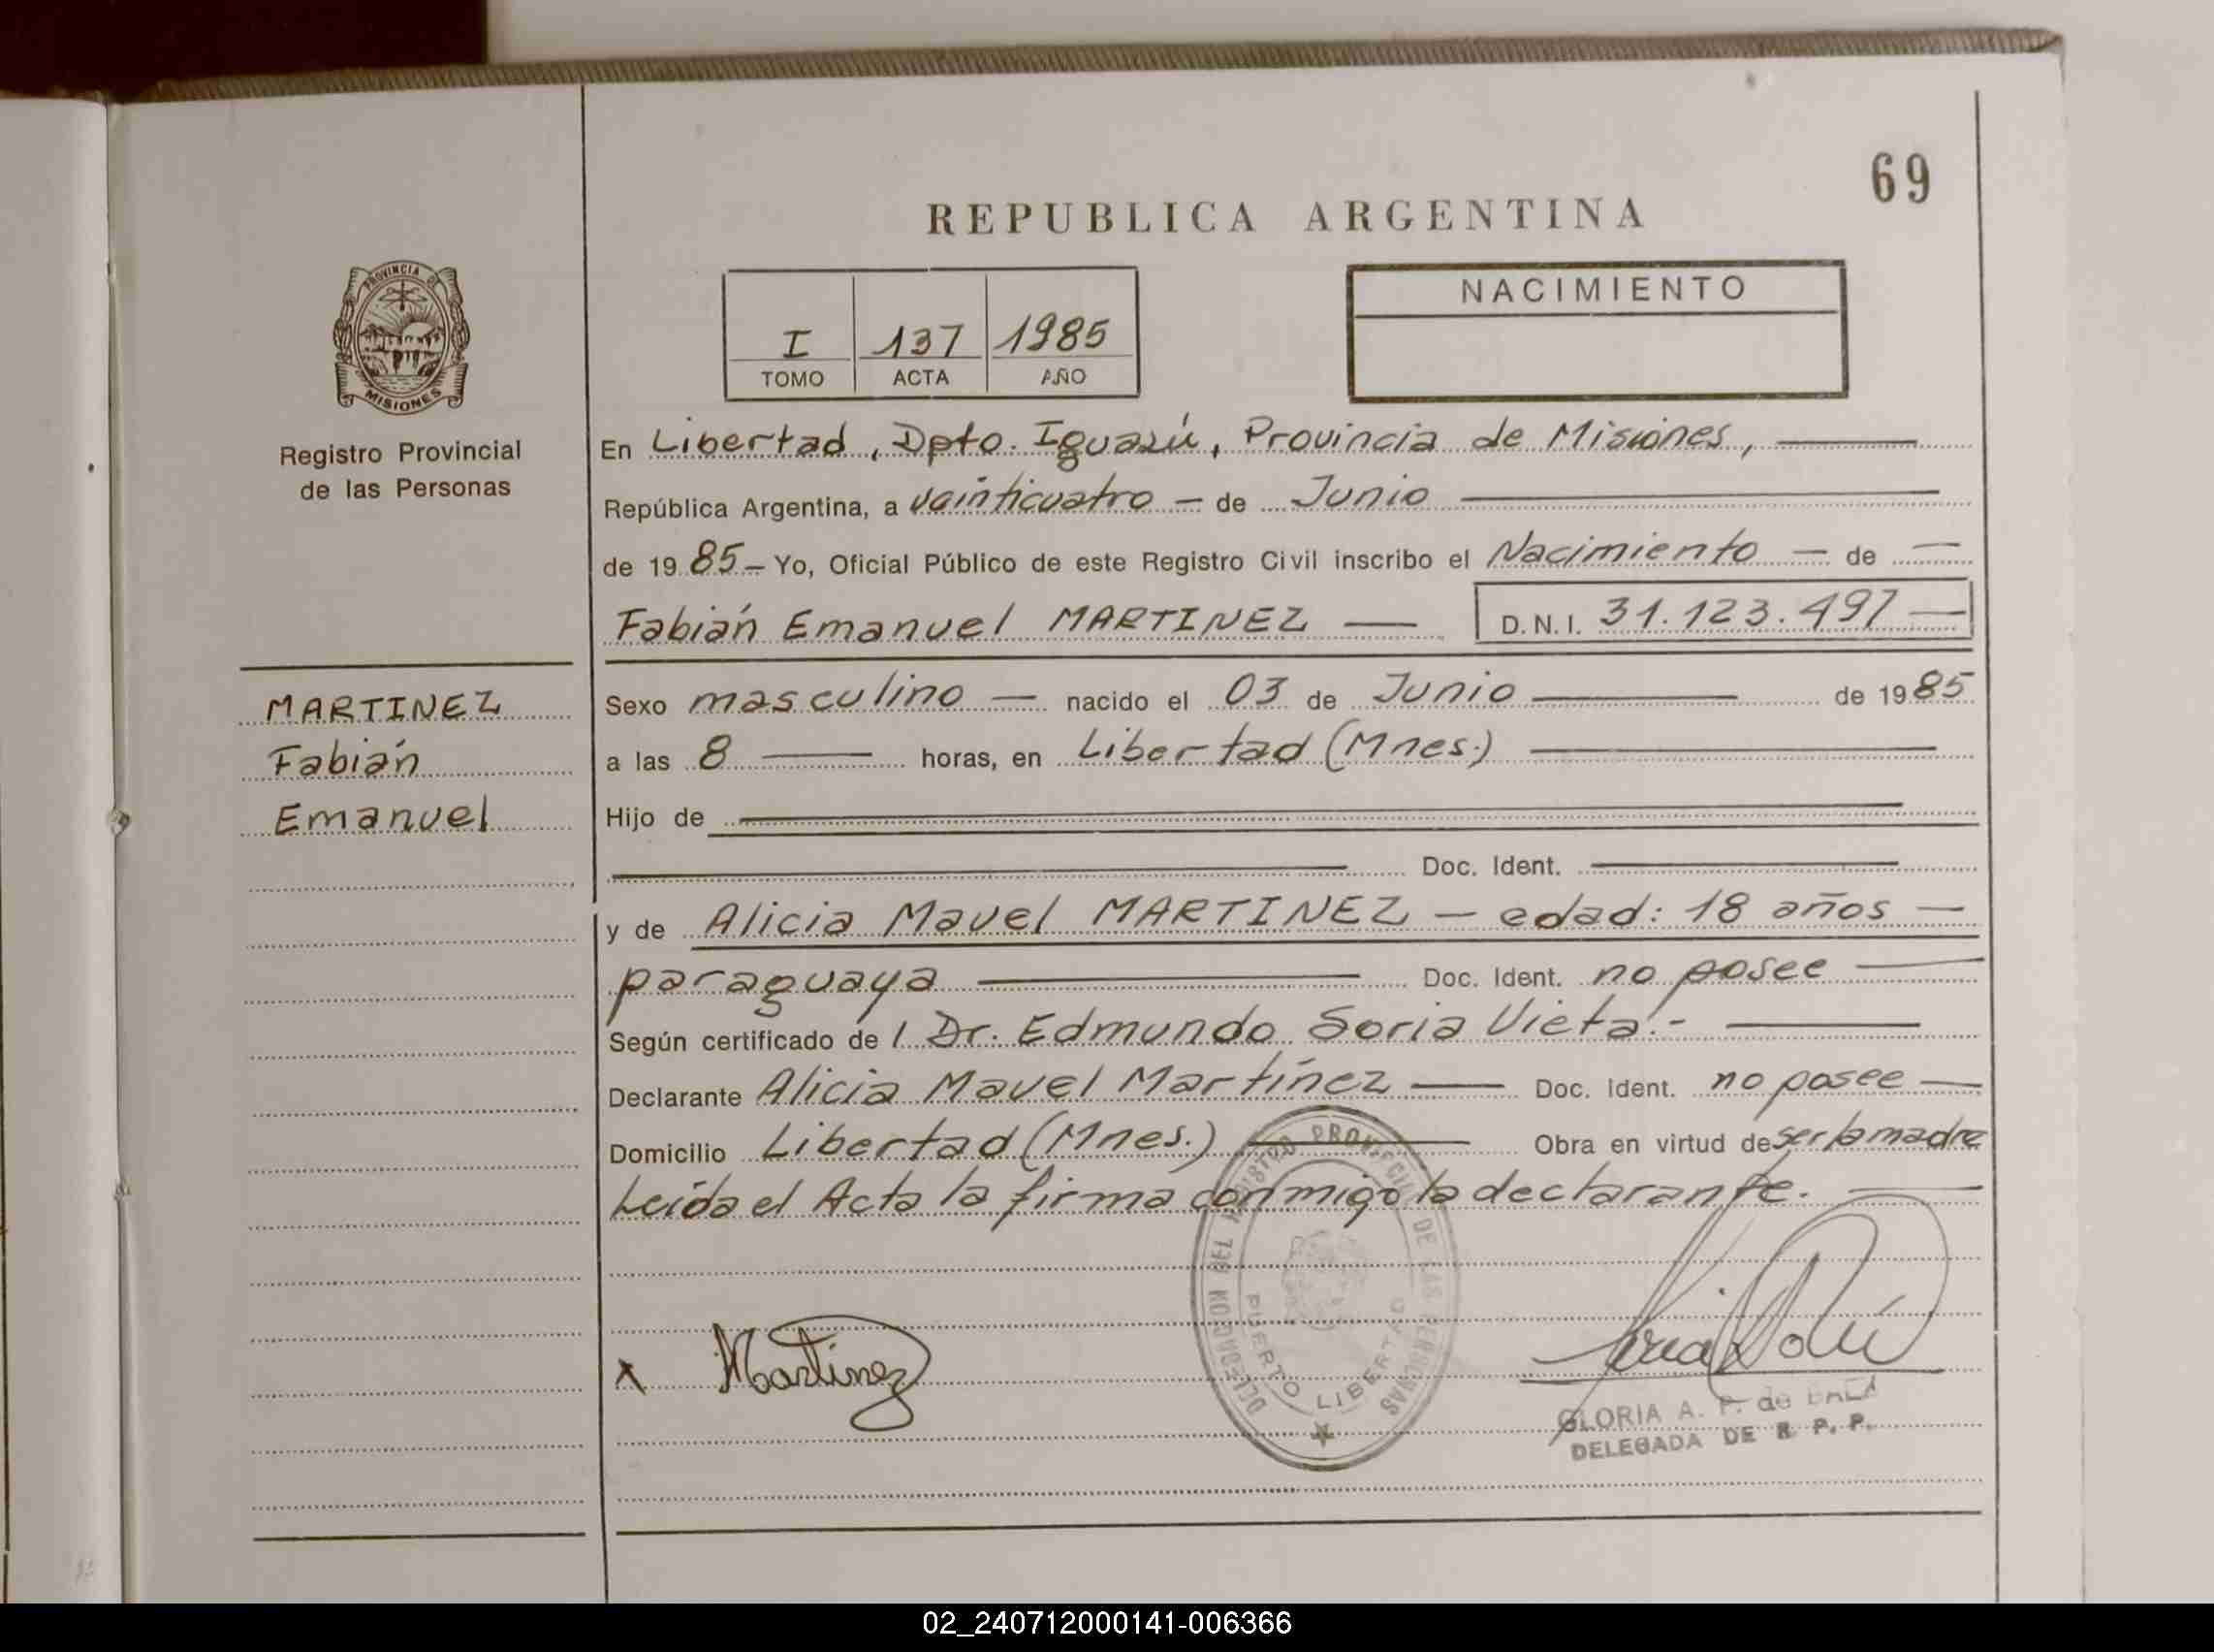 69
REPUBLICA ARGENTINA
PROVINCIA DE
MISIONES
Registro Provincial
de las Personas
I 137 1985
TOMO ACTA AÑO
NACIMIENTO
En Libertad, Dpto. Iguazú, Provincia de Misiones,
República Argentina, a vainticuatro — de Junio
de 1985 — Yo, Oficial Público de este Registro Civil inscribo el Nacimiento — de —
Fabián Emanuel MARTINEZ — D.N.I. 31.123.497 —
MARTINEZ
Fabián
Emanuel
Sexo masculino — nacido el 03 de Junio — de 1985
a las 8 — horas, en Libertad (Mnes.) —
Hijo de
Doc. Ident.
y de Alicia Mavel MARTINEZ — edad: 18 años —
paraguaya — Doc. Ident. no posee —
Según certificado de l Dr. Edmundo Soria Vieta.- —
Declarante Alicia Mavel Martínez — Doc. Ident. no posee —
Domicilio Libertad (Mnes.) — Obra en virtud de ser la madre
Leída el Acta la firma conmigo la declarante. —
DELEGACION DEL REGISTRO PROVINCIAL DE LAS PERSONAS
PUERTO LIBERTAD
x Martinez
GLORIA A. P. de
DELEGADA DE R. P. P.
02_240712000141-006366